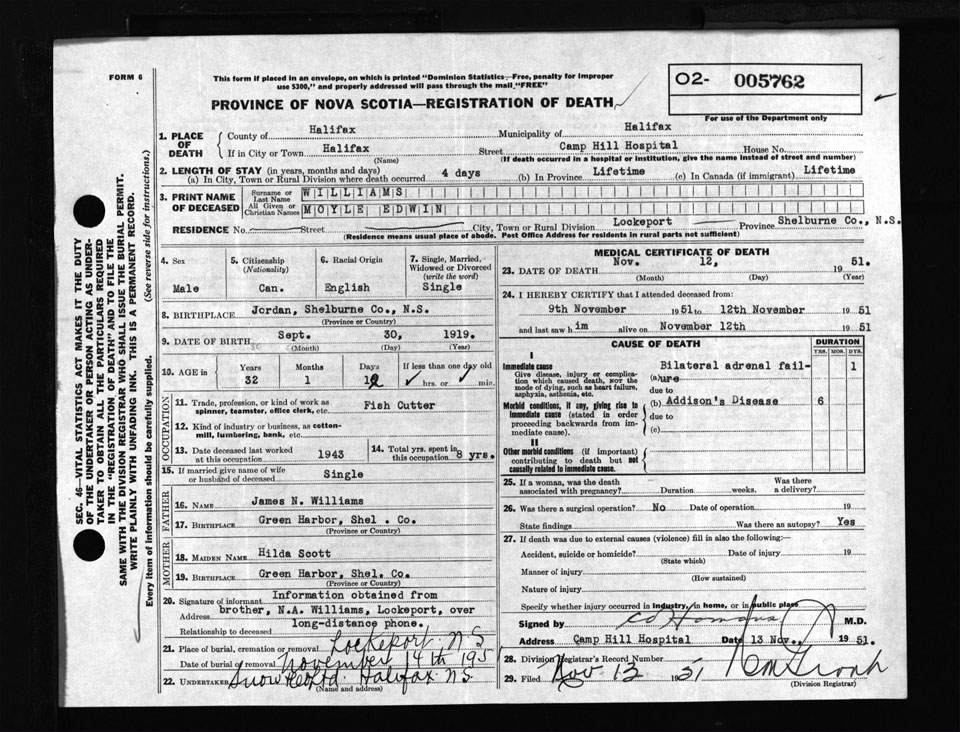 FORM 6
This form if placed in an envelope, on which is printed "Dominion Statistics—Free, penalty for improper
use $300," and properly addressed will pass through the mail "FREE"
O2- 005762
For use of the Department only
PROVINCE OF NOVA SCOTIA—REGISTRATION OF DEATH
SEC. 46—VITAL STATISTICS ACT MAKES IT THE DUTY
OF THE UNDERTAKER OR PERSON ACTING AS UNDER-
TAKER TO OBTAIN ALL THE PARTICULARS REQUIRED
IN THE "REGISTRATION OF DEATH" AND TO FILE THE
SAME WITH THE DIVISION REGISTRAR WHO SHALL ISSUE THE BURIAL PERMIT.
WRITE PLAINLY WITH UNFADING INK. THIS IS A PERMANENT RECORD.
Every item of information should be carefully supplied. (See reverse side for instructions.)
1. PLACE OF DEATH
County of Halifax Municipality of Halifax
If in City or Town Halifax Street Camp Hill Hospital House No.
(Name) (If death occurred in a hospital or institution, give the name instead of street and number)
2. LENGTH OF STAY (in years, months and days)
(a) In City, Town or Rural Division where death occurred 4 days (b) In Province Lifetime (c) In Canada (if immigrant) Lifetime
3. PRINT NAME OF DECEASED
Surname or Last Name WILLIAMS
All Given or Christian Names MOYLE EDWIN
RESIDENCE No. Street City, Town or Rural Division Lockeport Province Shelburne Co., N.S.
(Residence means usual place of abode. Post Office Address for residents in rural parts not sufficient)
4. Sex
Male
5. Citizenship (Nationality)
Can.
6. Racial Origin
English
7. Single, Married, Widowed or Divorced (write the word)
Single
8. BIRTHPLACE Jordan, Shelburne Co., N.S.
(Province or Country)
9. DATE OF BIRTH Sept. 30, 1919.
(Month) (Day) (Year)
10. AGE in Years Months Days If less than one day old
32 1 12 hrs. or min.
OCCUPATION
11. Trade, profession, or kind of work as
spinner, teamster, office clerk, etc. Fish Cutter
12. Kind of industry or business, as cotton-
mill, lumbering, bank, etc.
13. Date deceased last worked
at this occupation 1943
14. Total yrs. spent in
this occupation 8 yrs.
15. If married give name of wife
or husband of deceased Single
FATHER
16. NAME James N. Williams
17. BIRTHPLACE Green Harbor, Shel . Co.
(Province or Country)
MOTHER
18. MAIDEN NAME Hilda Scott
19. BIRTHPLACE Green Harbor, Shel. Co.
(Province or Country)
20. Signature of informant Information obtained from
Address brother, N.A. Williams, Lockeport, over
Relationship to deceased long-distance phone.
21. Place of burial, cremation or removal Lockeport N.S
Date of burial or removal November 14th 195
22. UNDERTAKER Snow & Co Ltd. Halifax NS
(Name and address)
MEDICAL CERTIFICATE OF DEATH
23. DATE OF DEATH Nov. 12, 19 51.
(Month) (Day) (Year)
24. I HEREBY CERTIFY that I attended deceased from:
9th November 1951 to 12th November 1951
and last saw him alive on November 12th 1951
CAUSE OF DEATH
DURATION
YRS. MOS. DYS.
I
Immediate cause
Give disease, injury or complica-
tion which caused death, NOT the
mode of dying, such as heart failure,
asphyxia, asthenia, etc.
(a) Bilateral adrenal fail-
ure 1
due to
Morbid conditions, if any, giving rise to
immediate cause (stated in order
proceeding backwards from im-
mediate cause).
(b) Addison's Disease 6
due to
(c)
II
Other morbid conditions (if important)
contributing to death but not
causally related to immediate cause.
25. If a woman, was the death
associated with pregnancy? Duration weeks. Was there a delivery?
26. Was there a surgical operation? No Date of operation 19
State findings Was there an autopsy? Yes
27. If death was due to external causes (violence) fill in also the following:—
Accident, suicide or homicide? Date of injury 19
(State which)
Manner of injury
(How sustained)
Nature of injury
Specify whether injury occurred in industry, in home, or in public place
Signed by M.D.
Address Camp Hill Hospital Date 13 Nov., 1951.
28. Division Registrar's Record Number
29. Filed Nov 13 1951
(Division Registrar)